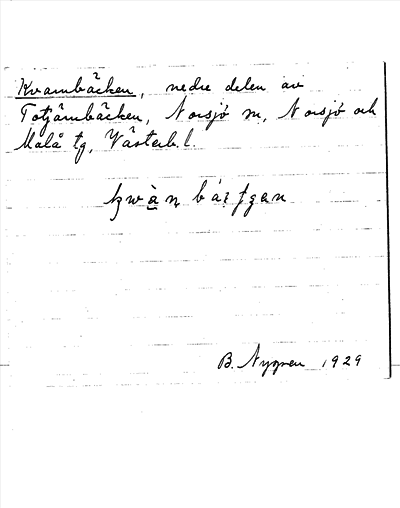 Kvarnbäcken, nedre delen av
Totjärnbäcken, Norsjö sn, Norsjö och
Malå tg, Västerb. l.
B. Nygren 1929